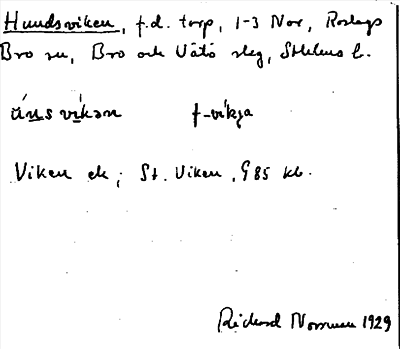 Hundsviken, f.d. torp, 1-3 Nor, Roslags
Bro sn, Bro och Vätö slg, Sthlms l.
úns vikən f-vikja
Viken ek; St. Viken, G85 kb.
Rickard Norrman 1929